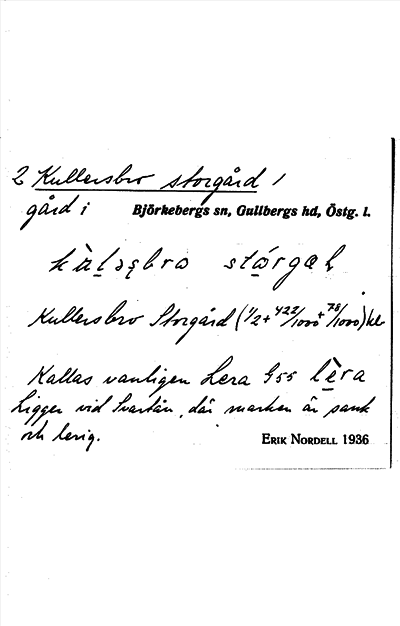 2 Kullersbro storgård /
gård i Björkebergs sn, Gullbergs hd, Östg. l.
Kullersbro Storgård (1/2 + 422/1000 + 78/1000) kl
Kallas vanligen Lera §55 lèra
Ligger vid Svartån, där marken är sank
och lerig. ERIK NORDELL 1936